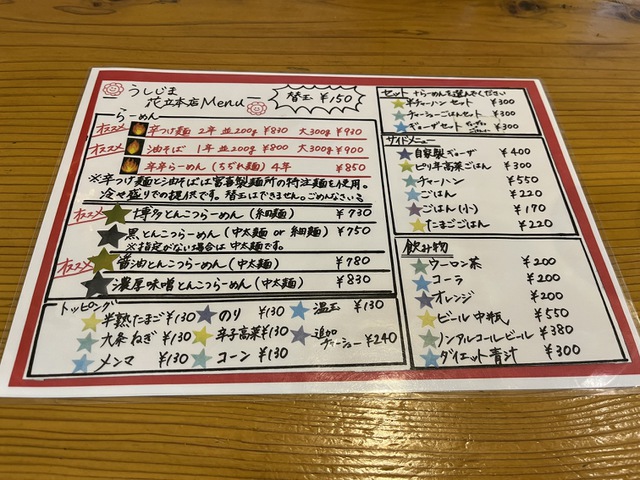 うしじま
花立本店Menu
替玉 ¥150
らーめん
オススメ 辛つけ麺 2辛 並200g ¥830 大300g ¥930
オススメ 油そば 1辛 並200g ¥800 大300g ¥900
辛辛らーめん(ちぢれ麺)4辛 ¥850
※辛つけ麺と油そばは富喜製麺所の特注麺を使用。
冷や盛りでの提供です。替玉はできません。ごめんなさい。
オススメ 博多とんこつらーめん(細麺) ¥730
黒とんこつらーめん(中太麺 or 細麺) ¥750
※指定がない場合は中太麺です。
オススメ 醤油とんこつらーめん(中太麺) ¥780
濃厚味噌とんこつらーめん(中太麺) ¥830
トッピング
半熟たまご ¥130 のり ¥130 温玉 ¥130
九条ねぎ ¥130 辛子高菜 ¥130 追加チャーシュー ¥240
メンマ ¥130 コーン ¥130
セット +らーめんを選んでください
半チャーハンセット ¥300
チャーシューごはんセット ¥300
ギョーザセット ¥300
サイドメニュー
自家製ギョーザ ¥400
ピリ辛高菜ごはん ¥300
チャーハン ¥550
ごはん ¥220
ごはん(小) ¥170
たまごごはん ¥220
飲み物
ウーロン茶 ¥200
コーラ ¥200
オレンジ ¥200
ビール中瓶 ¥550
ノンアルコールビール ¥380
ダイエット青汁 ¥300